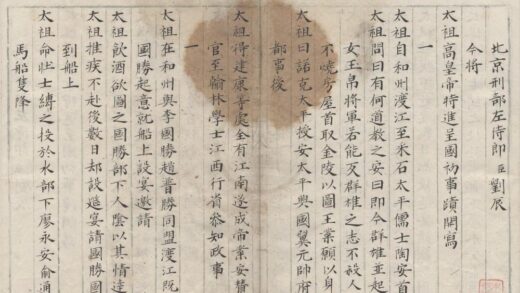 北京刑部左侍郎臣劉辰
今將
太祖高皇帝特進呈國初事蹟開寫
一
太祖自和州渡江至采石太平儒士陶安首
太祖問曰有何道教之安曰即今群雄並起
女玉帛將軍若能反群雄之志不殺人
不燒房屋首取金陵以圖王業願以身
太祖曰諾克太平授安太平興國翼元帥府
都事後
太祖得建康等處全有江南遂成帝業安贊
官至翰林學士江西行省參知政事
一
太祖在和州與李國勝趙普勝同盟渡江既
國勝起意就船上設宴邀請
太祖飲酒欲圖之國勝部下人陰以其情達
太祖推疾不赴後數日却設筵宴請國勝國
到船上
太祖命壯士縛之投於水部下廖永安俞通
馬船雙降